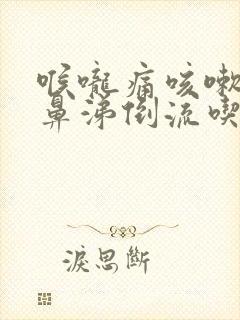 喉嚨痛咳嗽
鼻涕倒流喫
淚思斷